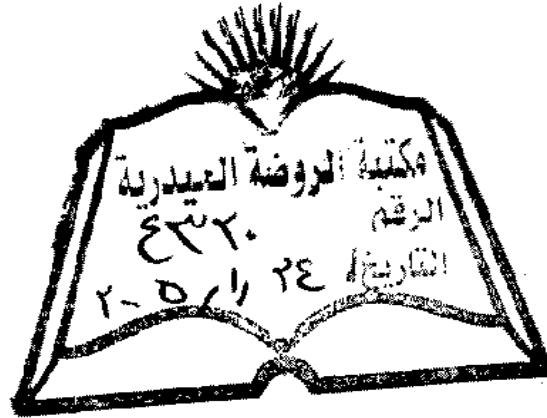 مكتبة الروضة الحيدرية
الرقم ٤٣٢٠
التاريخ ٢٤ / ١ /